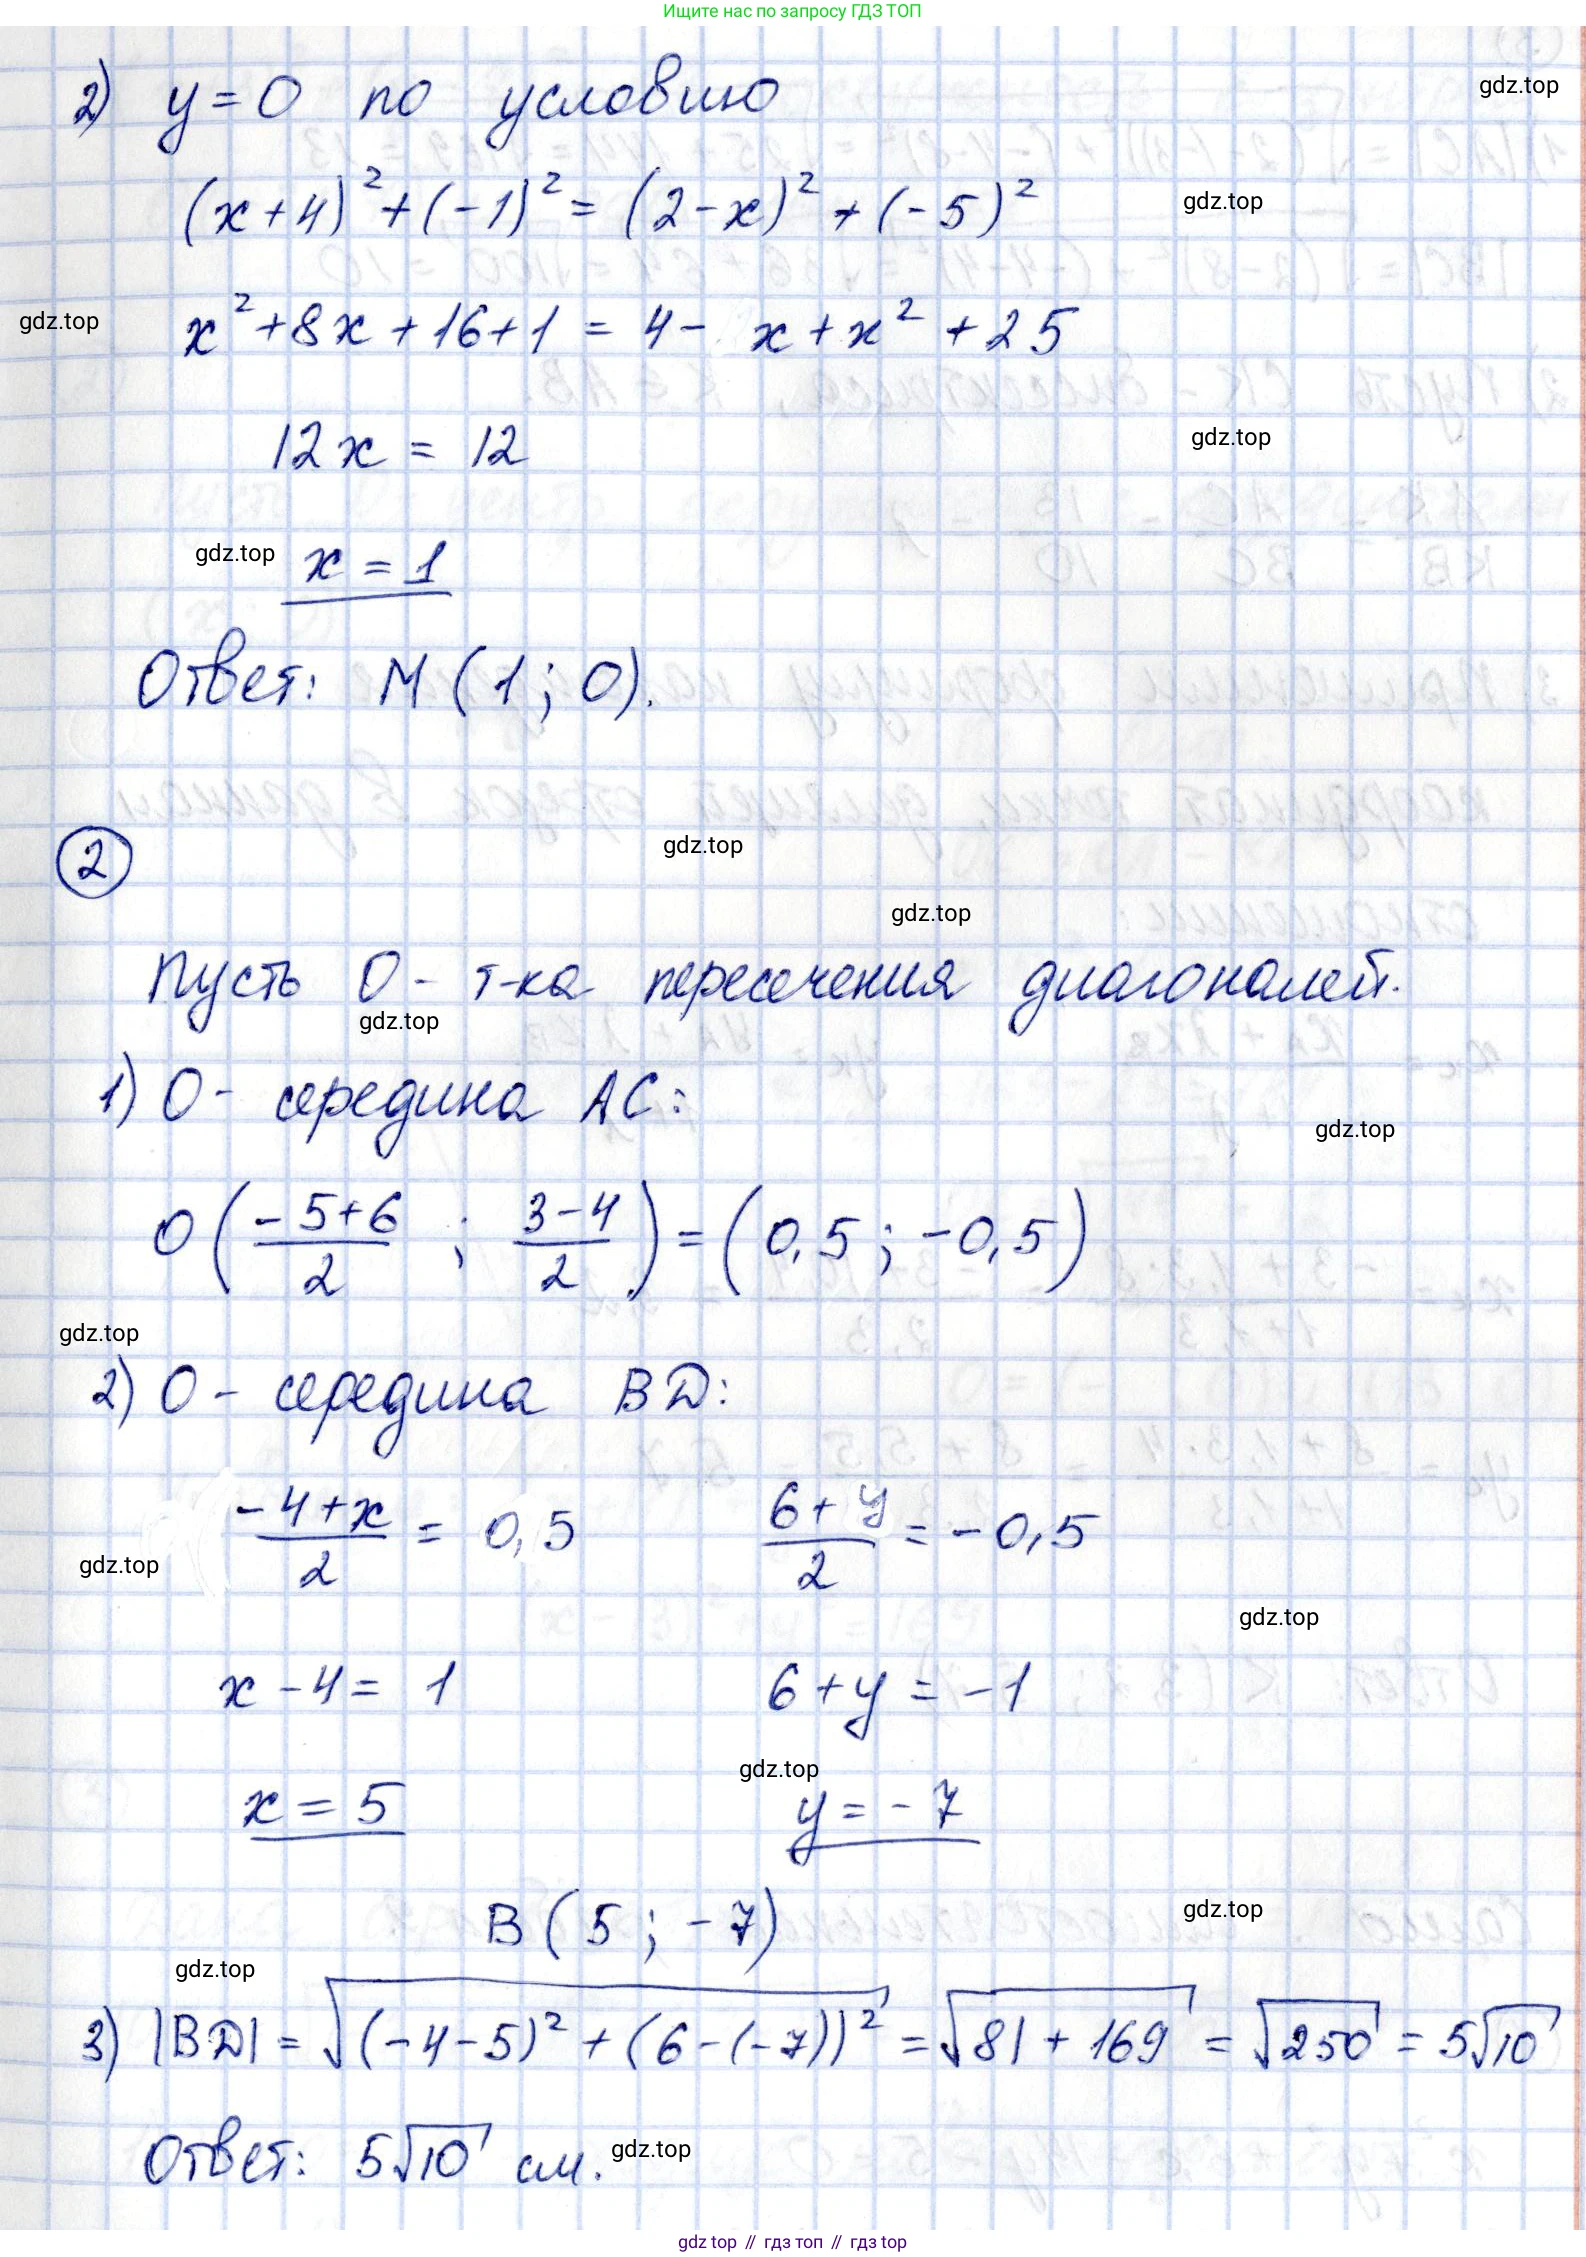 Ищите нас по запросу ГДЗ ТОП
2) y=0 по условию
gdz.top
(x+4)²+(-1)²=(2-x)²+(-5)²
gdz.top
gdz.top
x²+8x+16+1=4- x+x²+25
12x=12
gdz.top
gdz.top
x=1
Ответ: M(1;0).
2
gdz.top
gdz.top
Пусть O- т-ка пересечения диагоналей.
gdz.top
1) O- середина AC:
gdz.top
O(\frac{-5+6}{2};\frac{3-4}{2})=(0,5;-0,5)
gdz.top
2) O- середина BD:
\frac{-4+x}{2}=0,5 \frac{6+y}{2}=-0,5
gdz.top
gdz.top
x-4=1 6+y=-1
gdz.top
x=5 y=-7
B(5;-7)
gdz.top
gdz.top
3) |BD|=√((-4-5)²+(6-(-7))²)=√(81+169)=√250=5√10
Ответ: 5√10 см.
gdz.top
gdz top // гдз топ // гдз top